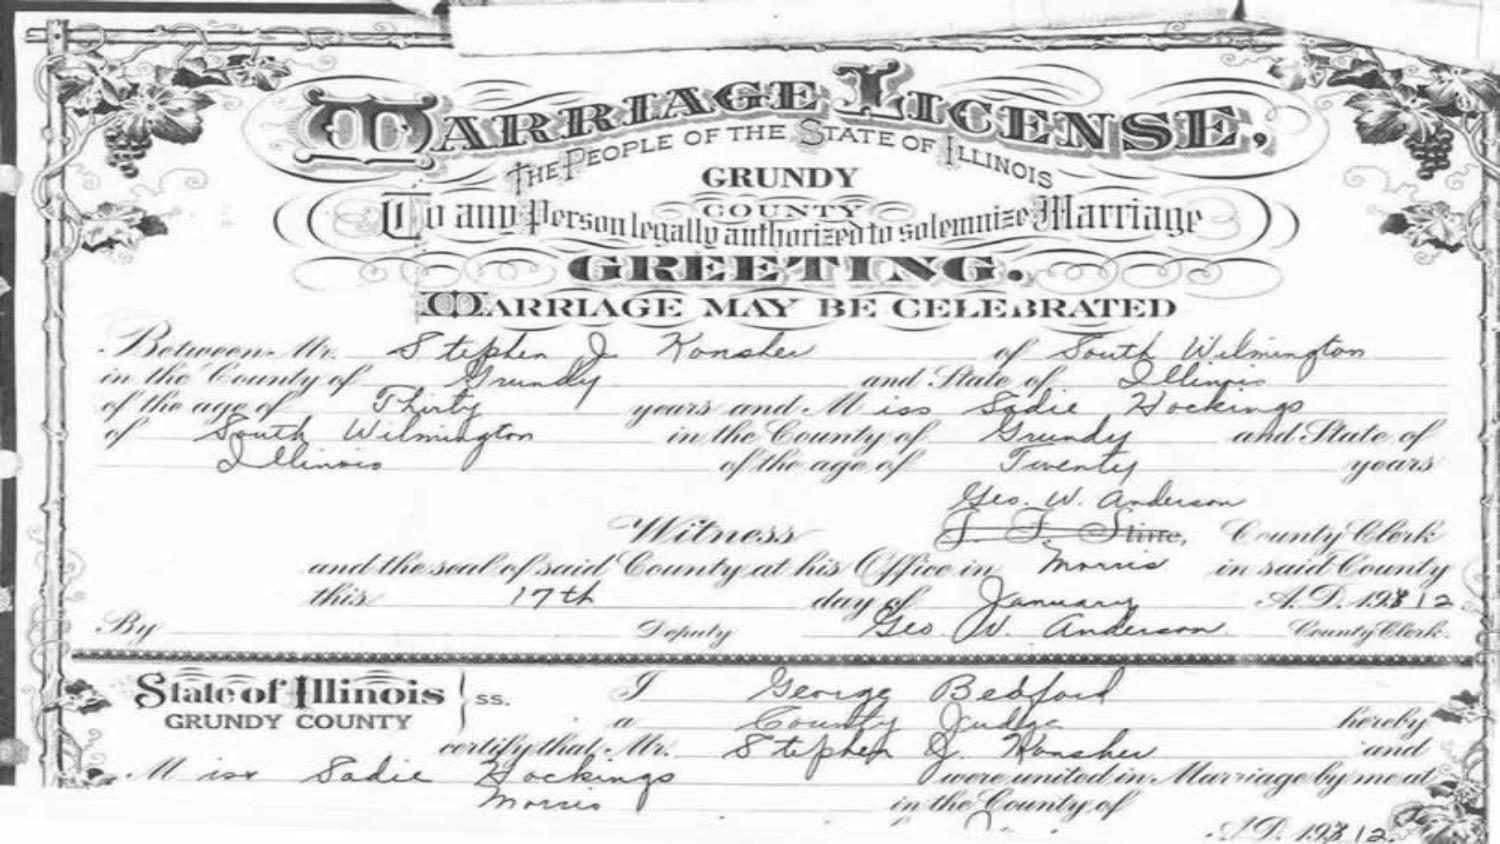 MARRIAGE LICENSE,
THE PEOPLE OF THE STATE OF ILLINOIS
GRUNDY
COUNTY
To any Person legally authorized to solemnize Marriage
GREETING.
MARRIAGE MAY BE CELEBRATED
Between Mr. Stephen J. Konsher of South Wilmington
in the County of Grundy and State of Illinois
of the age of Thirty years and Miss Sadie Hockings
of South Wilmington in the County of Grundy and State of
Illinois of the age of Twenty years
Geo. W. Anderson
Witness County Clerk
and the seal of said County at his Office in Morris in said County
this 17th day of January A.D. 1912
By Deputy Geo W. Anderson County Clerk.
State of Illinois } ss. I George Bedford
GRUNDY COUNTY a County Judge hereby
certify that Mr. Stephen J. Konsher and
Miss Sadie Hockings were united in Marriage by me at
Morris in the County of
A.D. 1912.